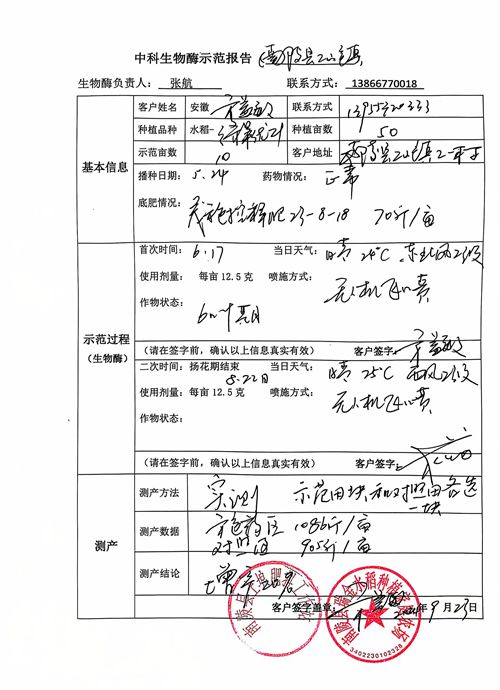 中科生物酶示范报告（南陵县工山镇）
生物酶负责人： 张航 联系方式： 13866770018
基本信息
客户姓名 安徽 联系方式
种植品种 水稻- 种植亩数 50
示范亩数 10 客户地址 南陵县工山镇
播种日期： 5.24 药物情况： 正常
底肥情况： 23-8-18 70斤/亩
示范过程
（生物酶）
首次时间： 6.17 当日天气： 晴 24℃ 东北风2级
使用剂量： 每亩12.5克 喷施方式： 无人机飞喷
作物状态：
（请在签字前，确认以上信息真实有效） 客户签字：
二次时间： 扬花期结束 当日天气： 晴 25℃ 西风2级
8.22日
使用剂量： 每亩12.5克 喷施方式： 无人机飞喷
作物状态：
（请在签字前，确认以上信息真实有效） 客户签字：
测产
测产方法 实测 示范田块和对照田各选
一块
测产数据 1086斤/亩
对照田 905斤/亩
测产结论 增产20%
客户签字盖章： 2024年9月23日
南陵县瑞金水稻种植家庭农场
3402230102328